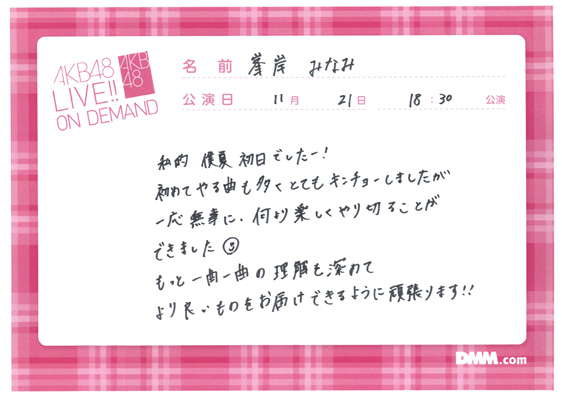 AKB48
LIVE!!
ON DEMAND
AKB
48
名前 峯岸 みなみ
公演日 11月 21日 18:30 公演
私的 僕夏 初日でしたー!
初めてやる曲も多くとてもキンチョーしましたが
一応無事に、何より楽しくやり切ることが
できました
もっと一曲一曲の理解を深めて
より良いものをお届けできるように頑張ります!!
DMM.com